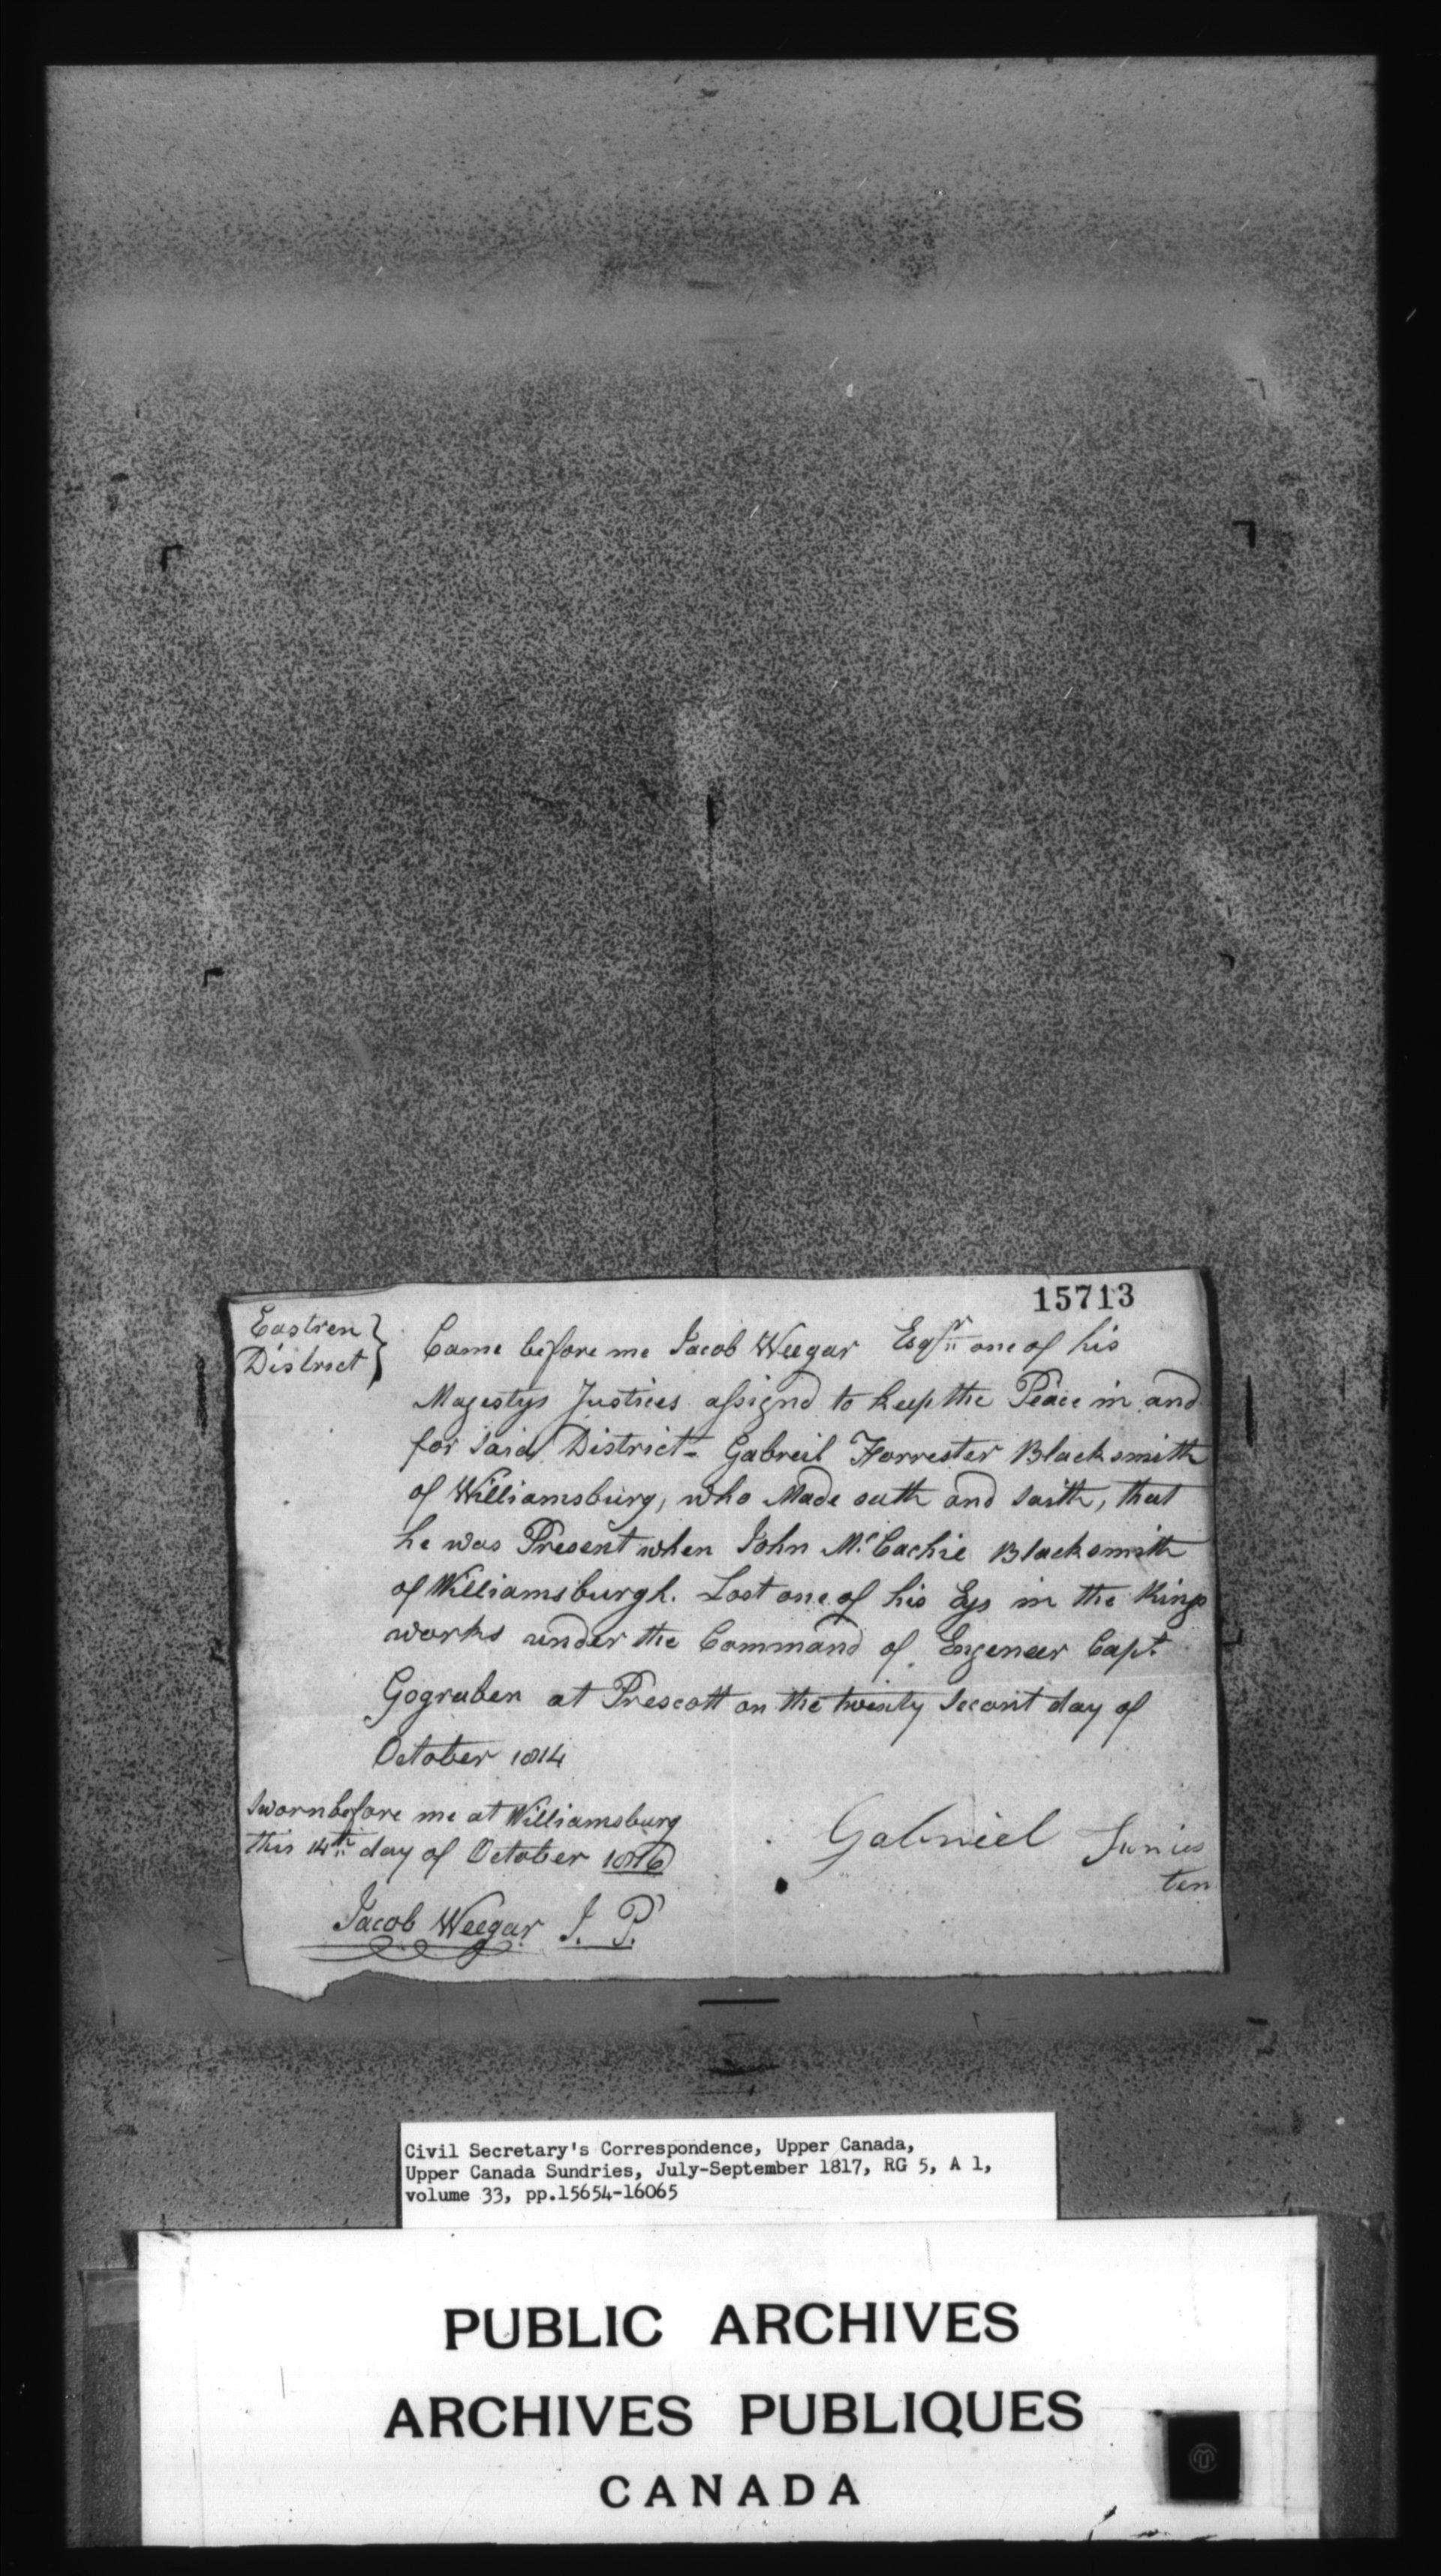 15713
Eastren
District }
Came before me Jacob Weegar Esqr. one of his
Majestys Justices assignd to keep the Peace in and
for said District- Gabreil Forrester Blacksmith
of Williamsburg, who Made outh and saith, that
he was Present when John Mc.Cachie Blacksmith
of Williamsburgh. Lost one of his Eys in the Kings
works under the Command of Engeneer Capt.
Gograben at Prescott on the twenty secont day of
October 1814
Sworn before me at Williamsburg
this 14th. day of October 1816
Gabriel
ten
Jacob Weegar J. P.
Civil Secretary's Correspondence, Upper Canada,
Upper Canada Sundries, July-September 1817, RG 5, A 1,
volume 33, pp.15654-16065
PUBLIC ARCHIVES
ARCHIVES PUBLIQUES
CANADA